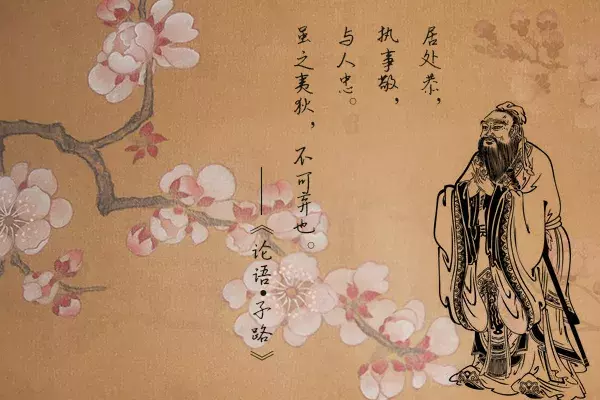 居处恭，
执事敬，
与人忠。
虽之夷狄，不可弃也。
——《论语•子路》